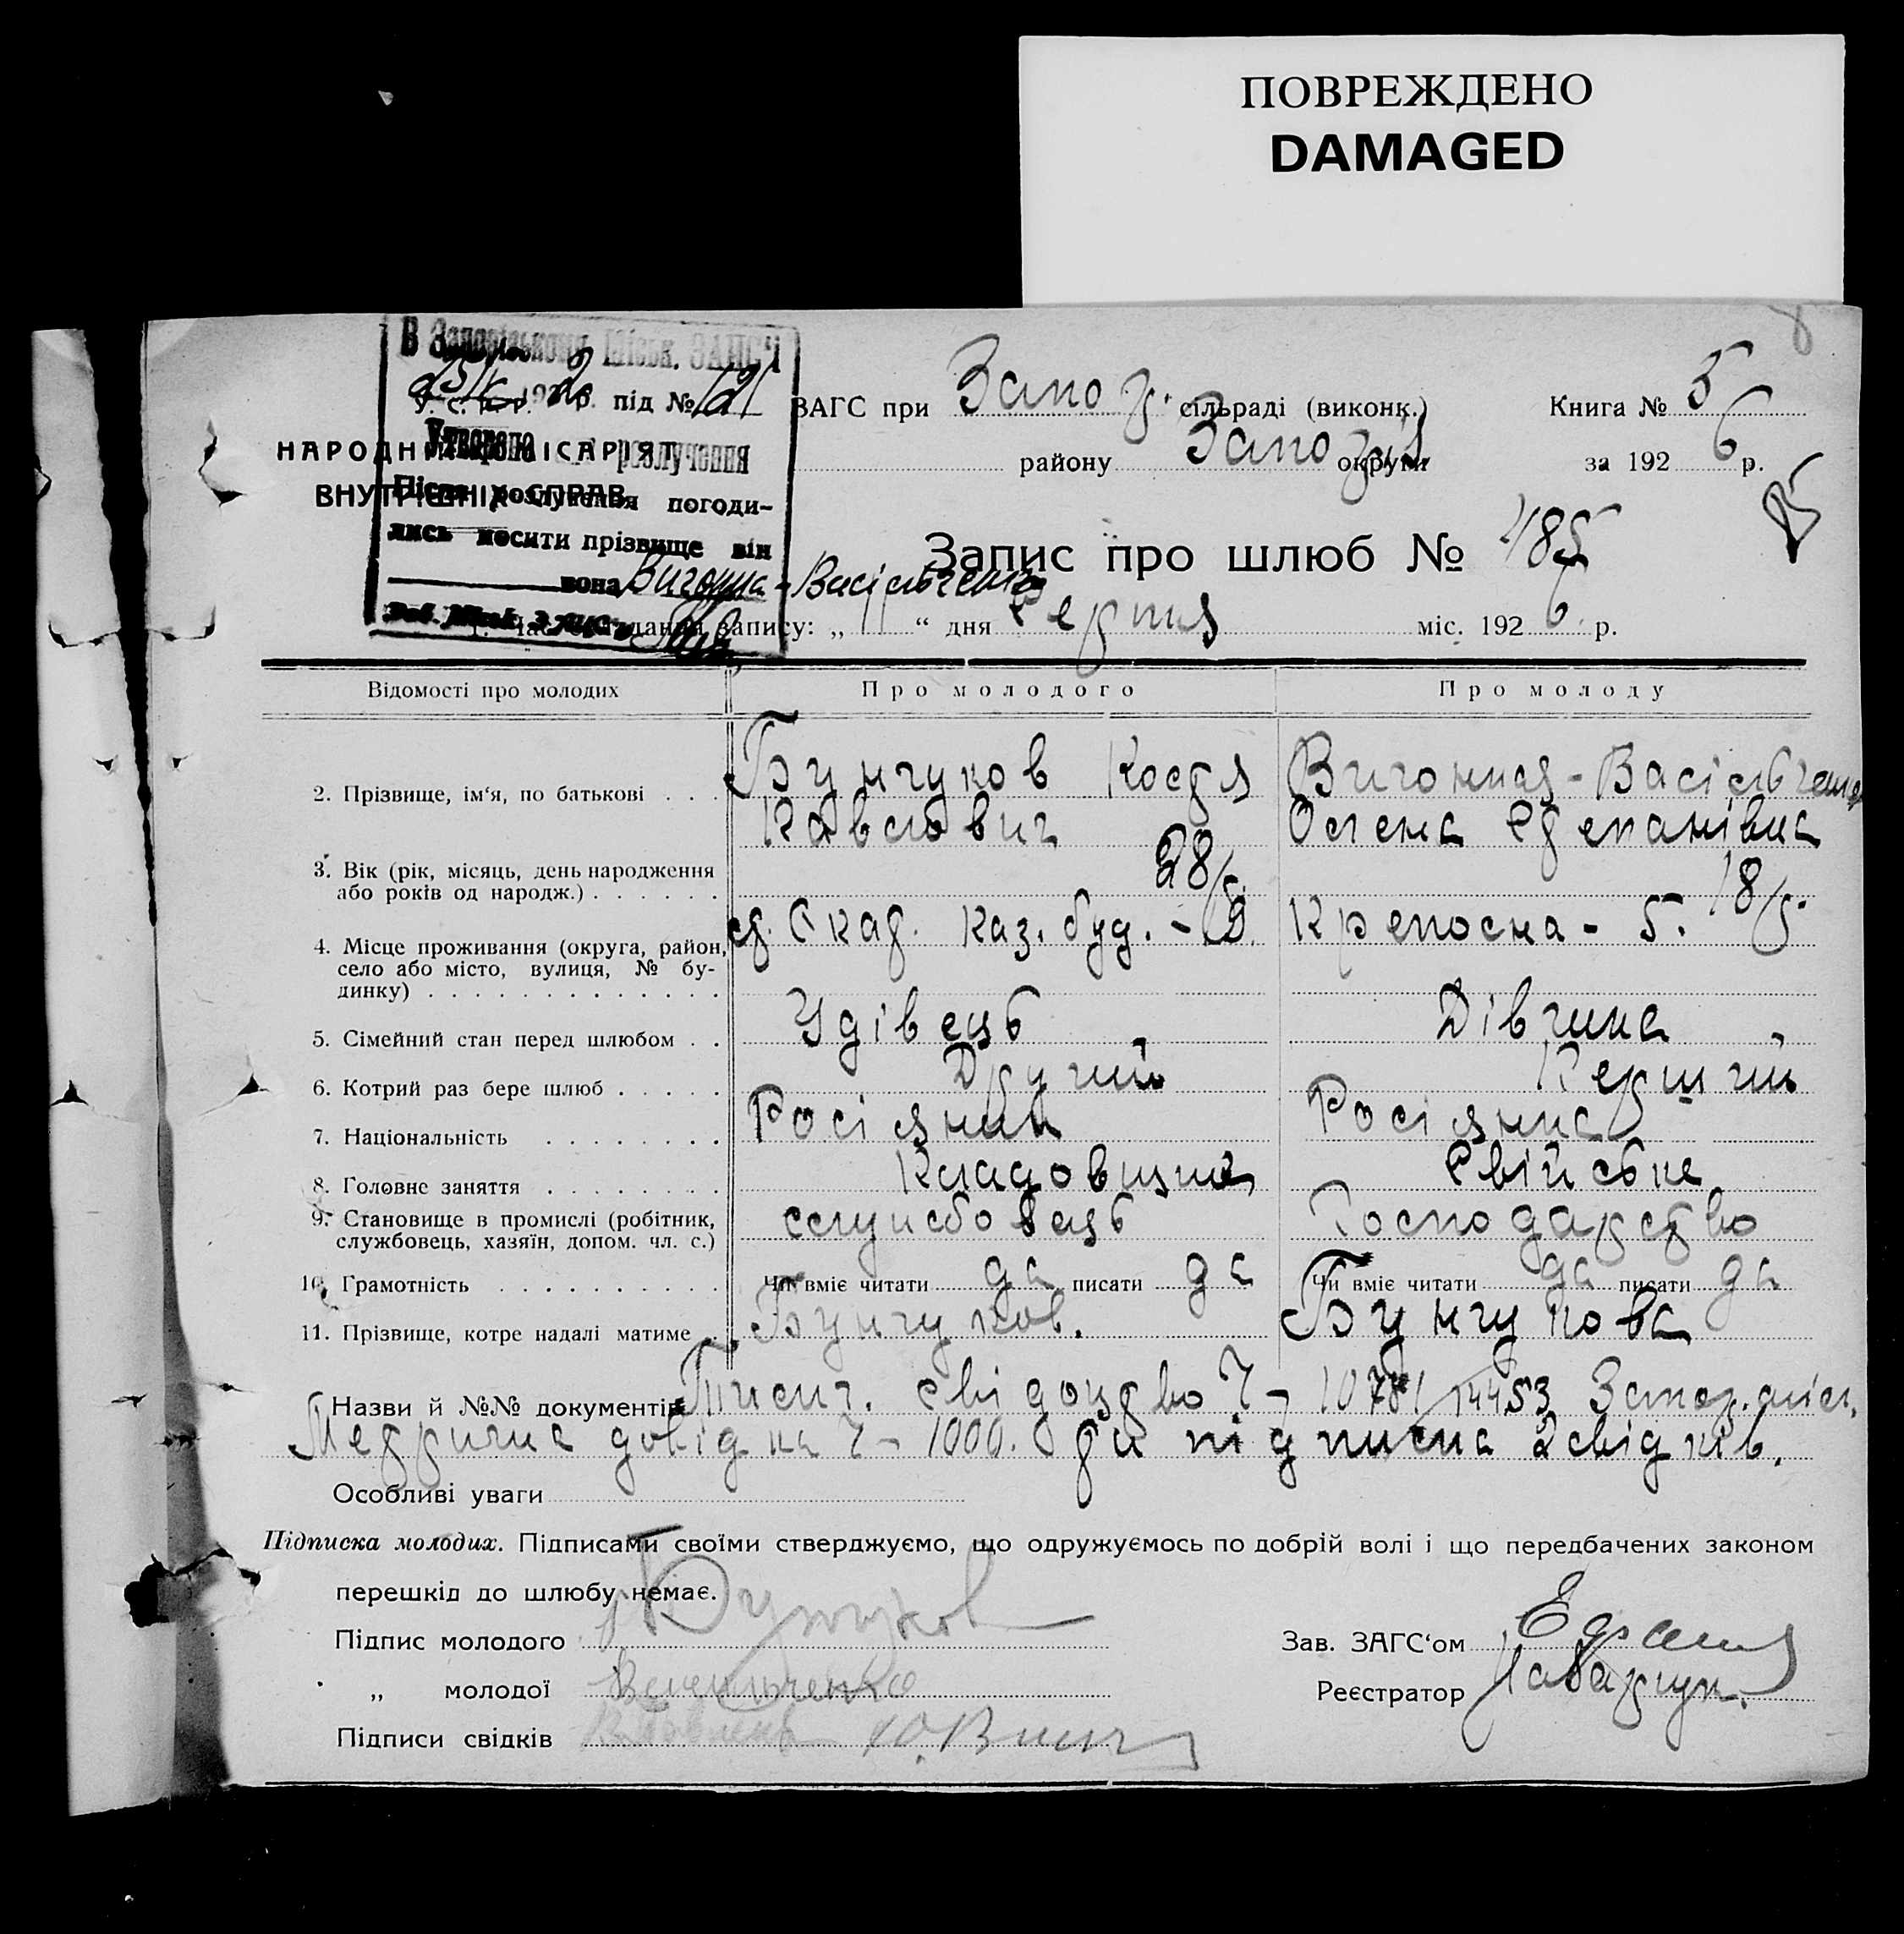 ПОВРЕЖДЕНО
DAMAGED
В Запорізькому Міськ. ЗАГС'і
192 р. під № 121
У. С. Р. Р.
НАРОДНІЙ КОМІСАРІЯТ
ВНУТРІШНІХ СПРАВ
розлучення
Після розлучення погоди-
лись носити прізвище він
вона Вигонна-Васільченко
ЗАГС при Запор. сільраді (виконк.) Книга № 5
району Запоріз. округи за 1926 р.
Запис про шлюб № 485
1. Час складання запису: „ 11 “ дня Серпня міс. 1926 р.
Відомості про молодих Про молодого Про молоду
2. Прізвище, ім‘я, по батькові . . . Бунчуков Костя Вигонная-Васільченко
Павлович Олена Степанівна
3. Вік (рік, місяць, день народження
або років од народж.) . . . . . . 28 р. 18 р.
4. Місце проживання (округа, район,
село або місто, вулиця, № бу-
динку) . . . . . . . . . . . . . каз. буд. - Крепосна - 5.
5. Сімейний стан перед шлюбом . . Удівець Дівчина
6. Котрий раз бере шлюб . . . . . Другий Перший
7. Національність . . . . . . . . Росіянин Росіянка
8. Головне заняття . . . . . . . . Кладовщик Свійське
9. Становище в промислі (робітник,
службовець, хазяїн, допом. чл. с.) служсбовець Господарство
10. Грамотність . . . . . . . . . . Чи вміє читати да писати да Чи вміє читати да писати да
11. Прізвище, котре надалі матиме . Бунчуков. Бунчукова
Назви й №№ документів Тисич. свідоцтво Ч- 10781/14453 Запор. міс.
Метрична довідка Ч- 1000. та підписка 2 свідків.
Особливі уваги
Підписка молодих. Підписами своїми стверджуємо, що одружуємось по добрій волі і що передбачених законом
перешкід до шлюбу немає.
Підпис молодого Бунчуков
Зав. ЗАГС‘ом
„ молодої Васильченко
Реєстратор
Підписи свідків